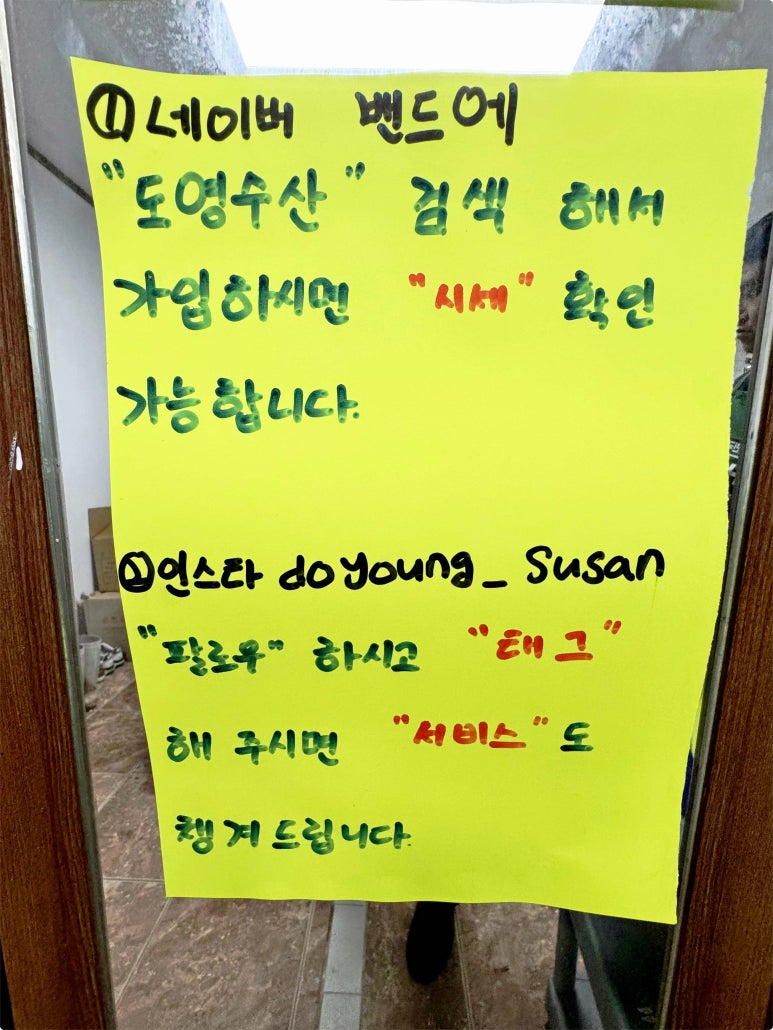 ① 네이버 밴드에
"도영수산" 검색 해서
가입하시면 "시세" 확인
가능합니다.
② 인스타 doyoung_ Susan
"팔로우" 하시고 "태그"
해 주시면 "서비스"도
챙겨드립니다.